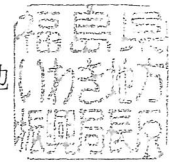 地
福島県
いわき地方
振興局長印